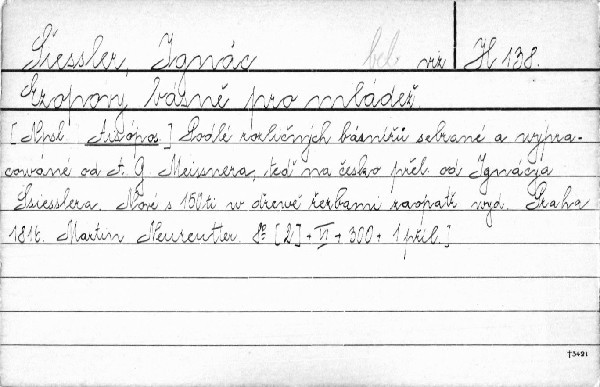 Siessler, Ignác bel. viz H 138.
Ezopovy básně pro mládež.
[Nhsl Aisópos.] Podlé rozličných básnířů sebrané a wypra-
cowáné od A. G Meissnera, teď na česko přel. od Ignácyá
Ssiesslera. Nové s 150ti w dřewě řezbami zaopatř. wyd. Praha
1816. Martin Neureutter. 8° [2]+VI+300+1 příl.]
†3421